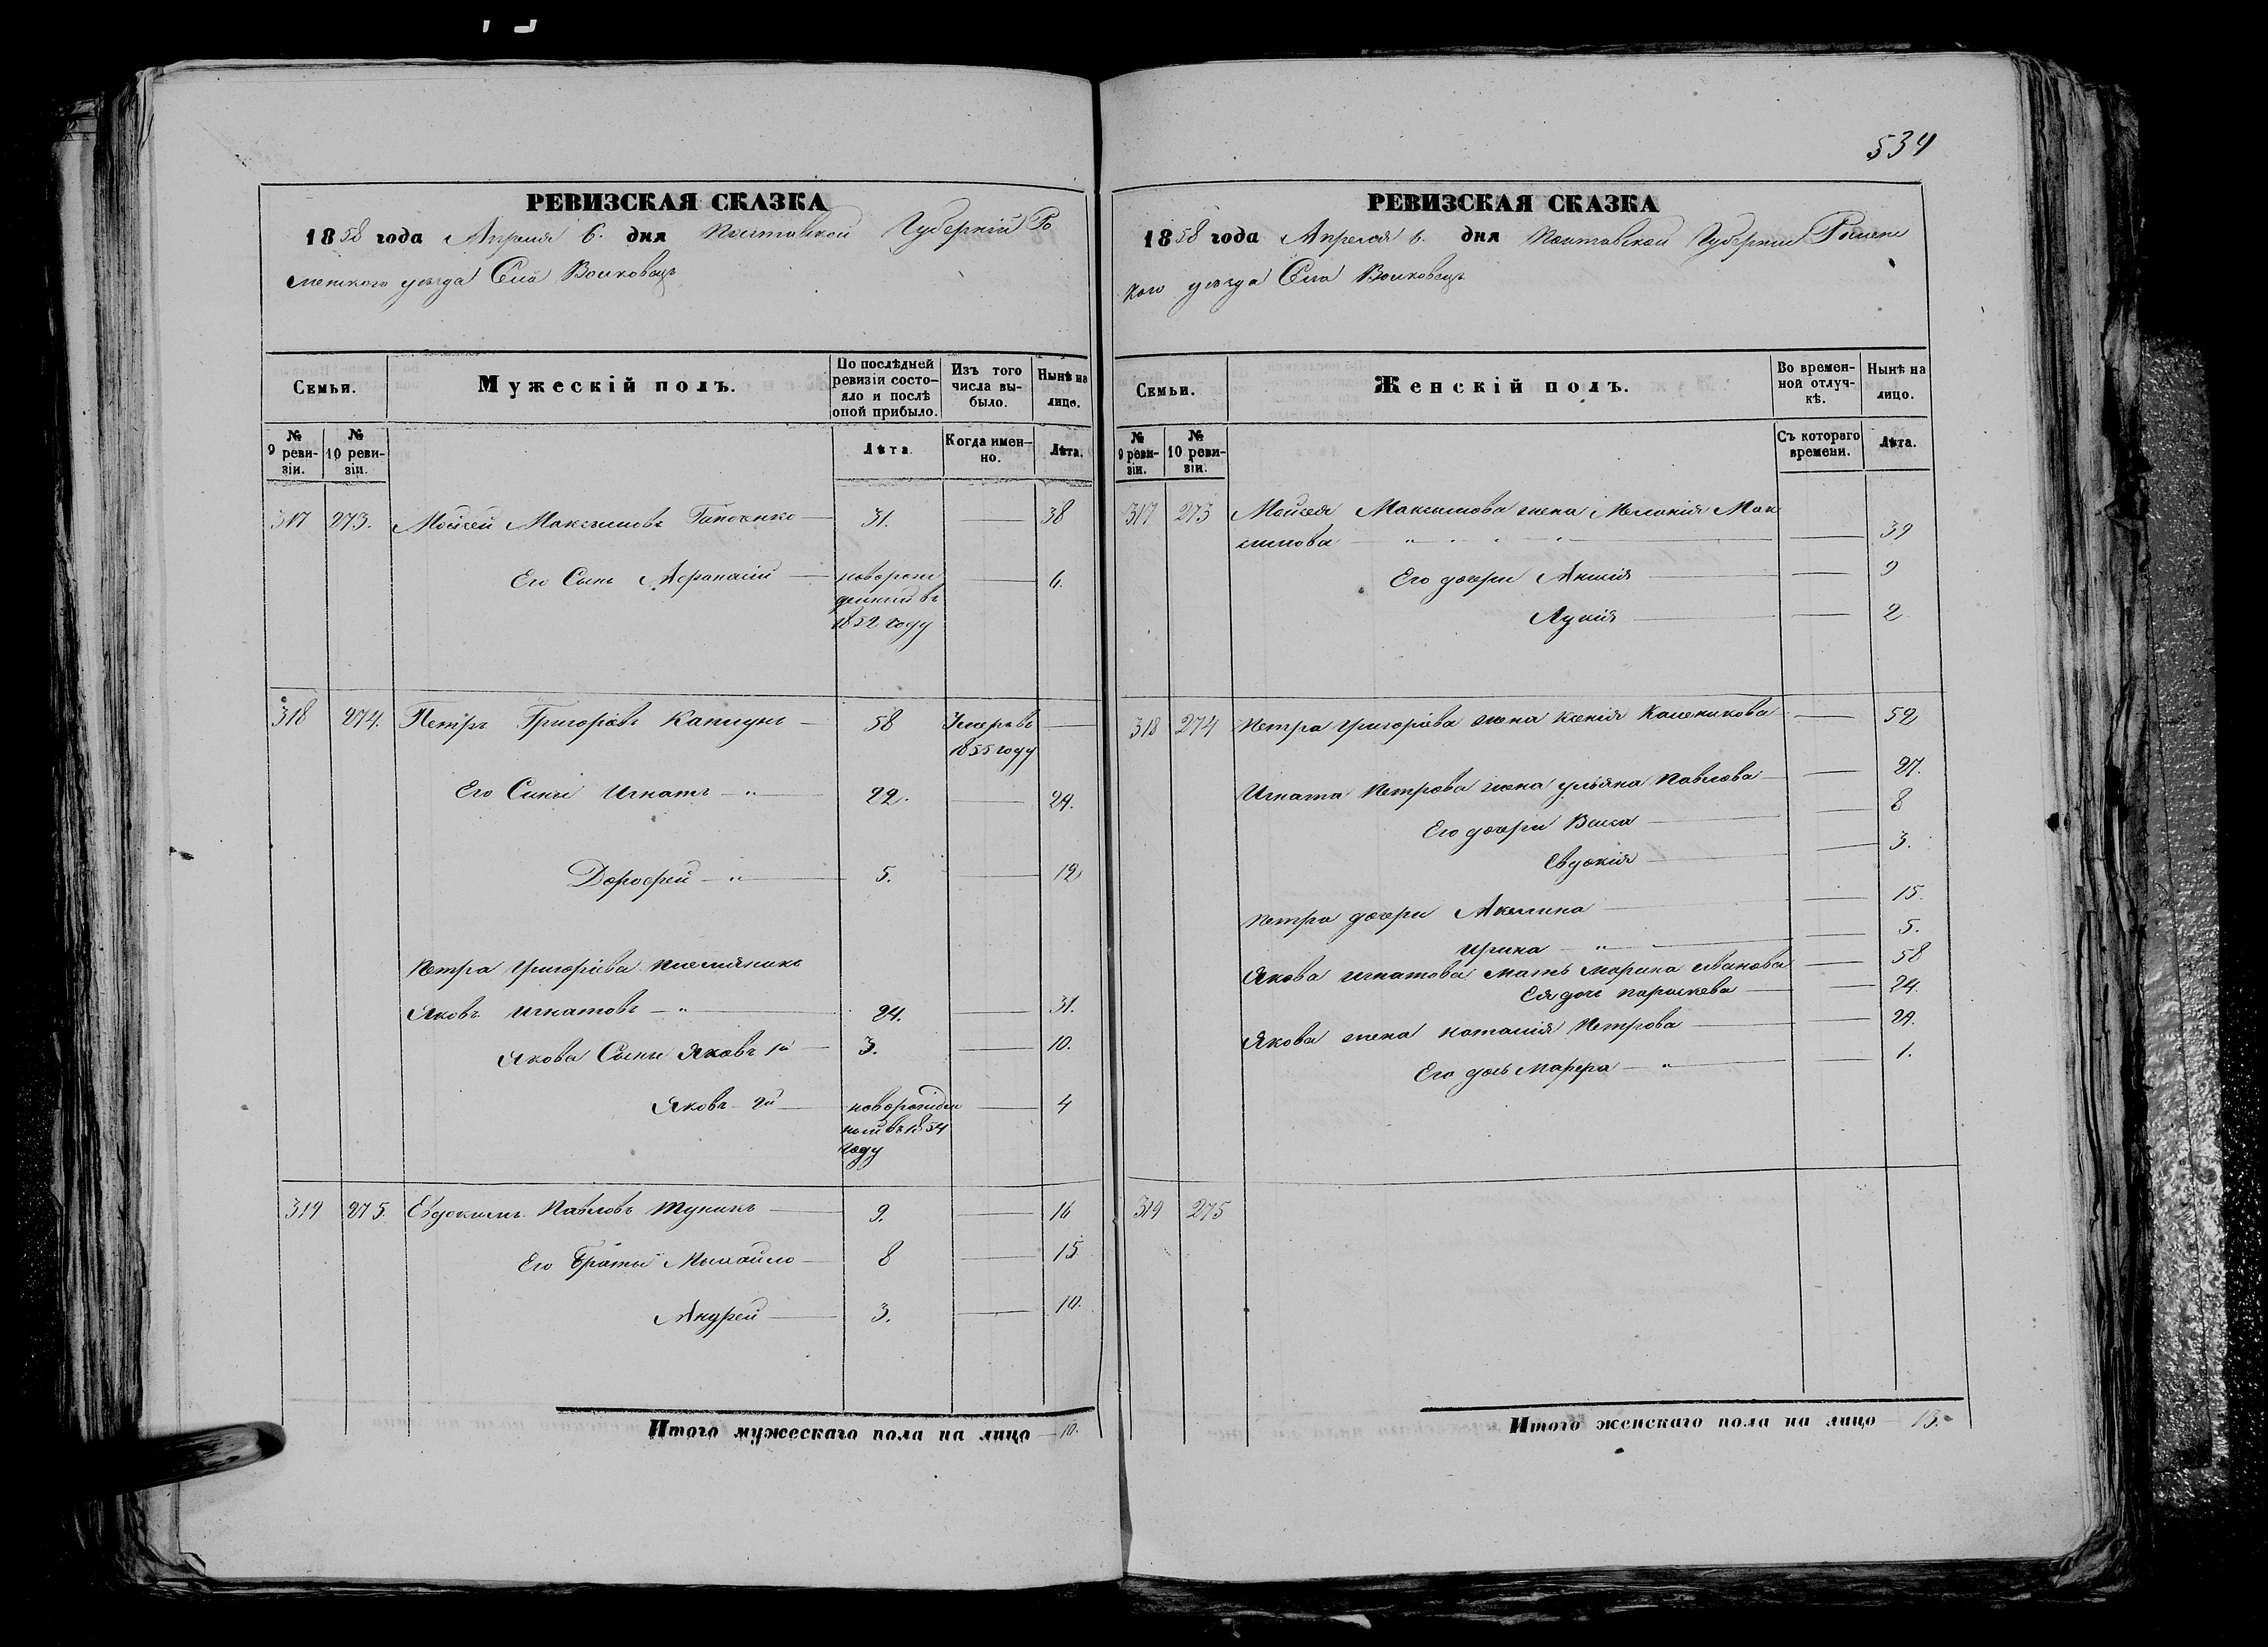 534
РЕВИЗСКАЯ СКАЗКА
1858 года Апреля 6. дня Полтавской Губерніи Ро
менского уезда Села Волковецъ
Семьи.
Мужескій полъ.
По послѣдней ревизіи состо-
яло и послѣ оной прибыло.
Изъ того числа вы-
было.
Нынѣ на лицо.
№ 9 реви-
зіи.
№ 10 реви-
зіи.
Лѣта.
Когда имен-
но.
Лѣта.
317 273. Мойсей Максимовъ Гапоченко 31. 38
Его Сынъ Афанасій новорож 6.
денний въ
1852 году
318 274. Петръ Григоріевъ Капшунъ 58 Умеръ въ
1855 году
Его Сыны Игнатъ — " 22. 29.
Дорофей — " 5. 12
Петра Григоріева племянникъ
Яковъ Игнатовъ — " 24. 31.
Якова Сыны Яковъ 1й 3. 10.
Яковъ 2й новорожден 4
ный въ 1854
году
319 275. Евдокимъ Павловъ Тупикъ 9. 16
Его Браты Михайло 8 15
Андрей 3. 10.
Итого мужескаго пола на лицо 10.
РЕВИЗСКАЯ СКАЗКА
1858 года Апреля 6. дня Полтавской Губерніи Ромен
кого уезда Села Волковецъ
Семьи.
Женскій полъ.
Во времен-
ной отлуч-
кѣ.
Нынѣ на лицо.
№ 9 реви-
зіи.
№ 10 реви-
зіи.
Съ котораго времени.
Лѣта.
317 273 Мойсея Максимова жена Меланія Мак
симова 39
Его дочери Анисія 9
Лукія 2
318 274 Петра Григоріева жена Ксенія Каленикова 52
Игната Петрова жена Ульяна Павлова 27.
Его дочери Васса 8
Евдокія 3.
Петра дочери Акилина 15.
Ирина — " 5.
Якова Игнатова мать Марина Иванова 58
Ея дочь Параскева 24.
Якова жена Наталія Петрова 29.
Его дочь Марфа — " 1.
319 275
Итого женскаго пола на лицо 13.